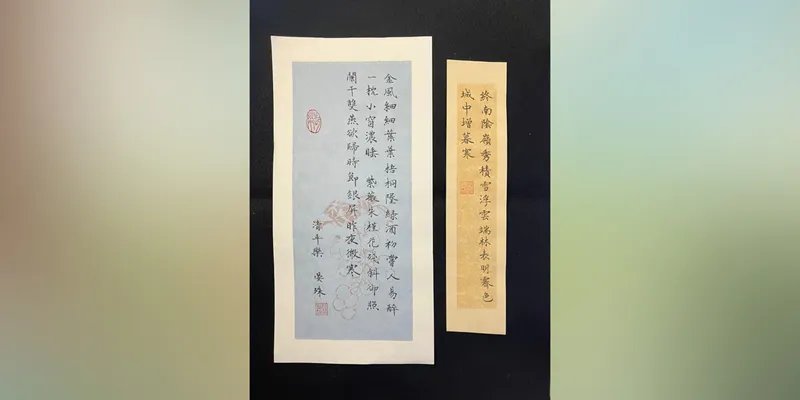 金風細細葉葉梧桐墜綠酒初嘗人易醉
一枕小窗濃睡 紫薇朱槿花殘斜卻照
闌干雙燕欲歸時節銀屏昨夜微寒
清平樂 晏殊
終南陰嶺秀積雪浮雲端林表明霽色
城中增暮寒